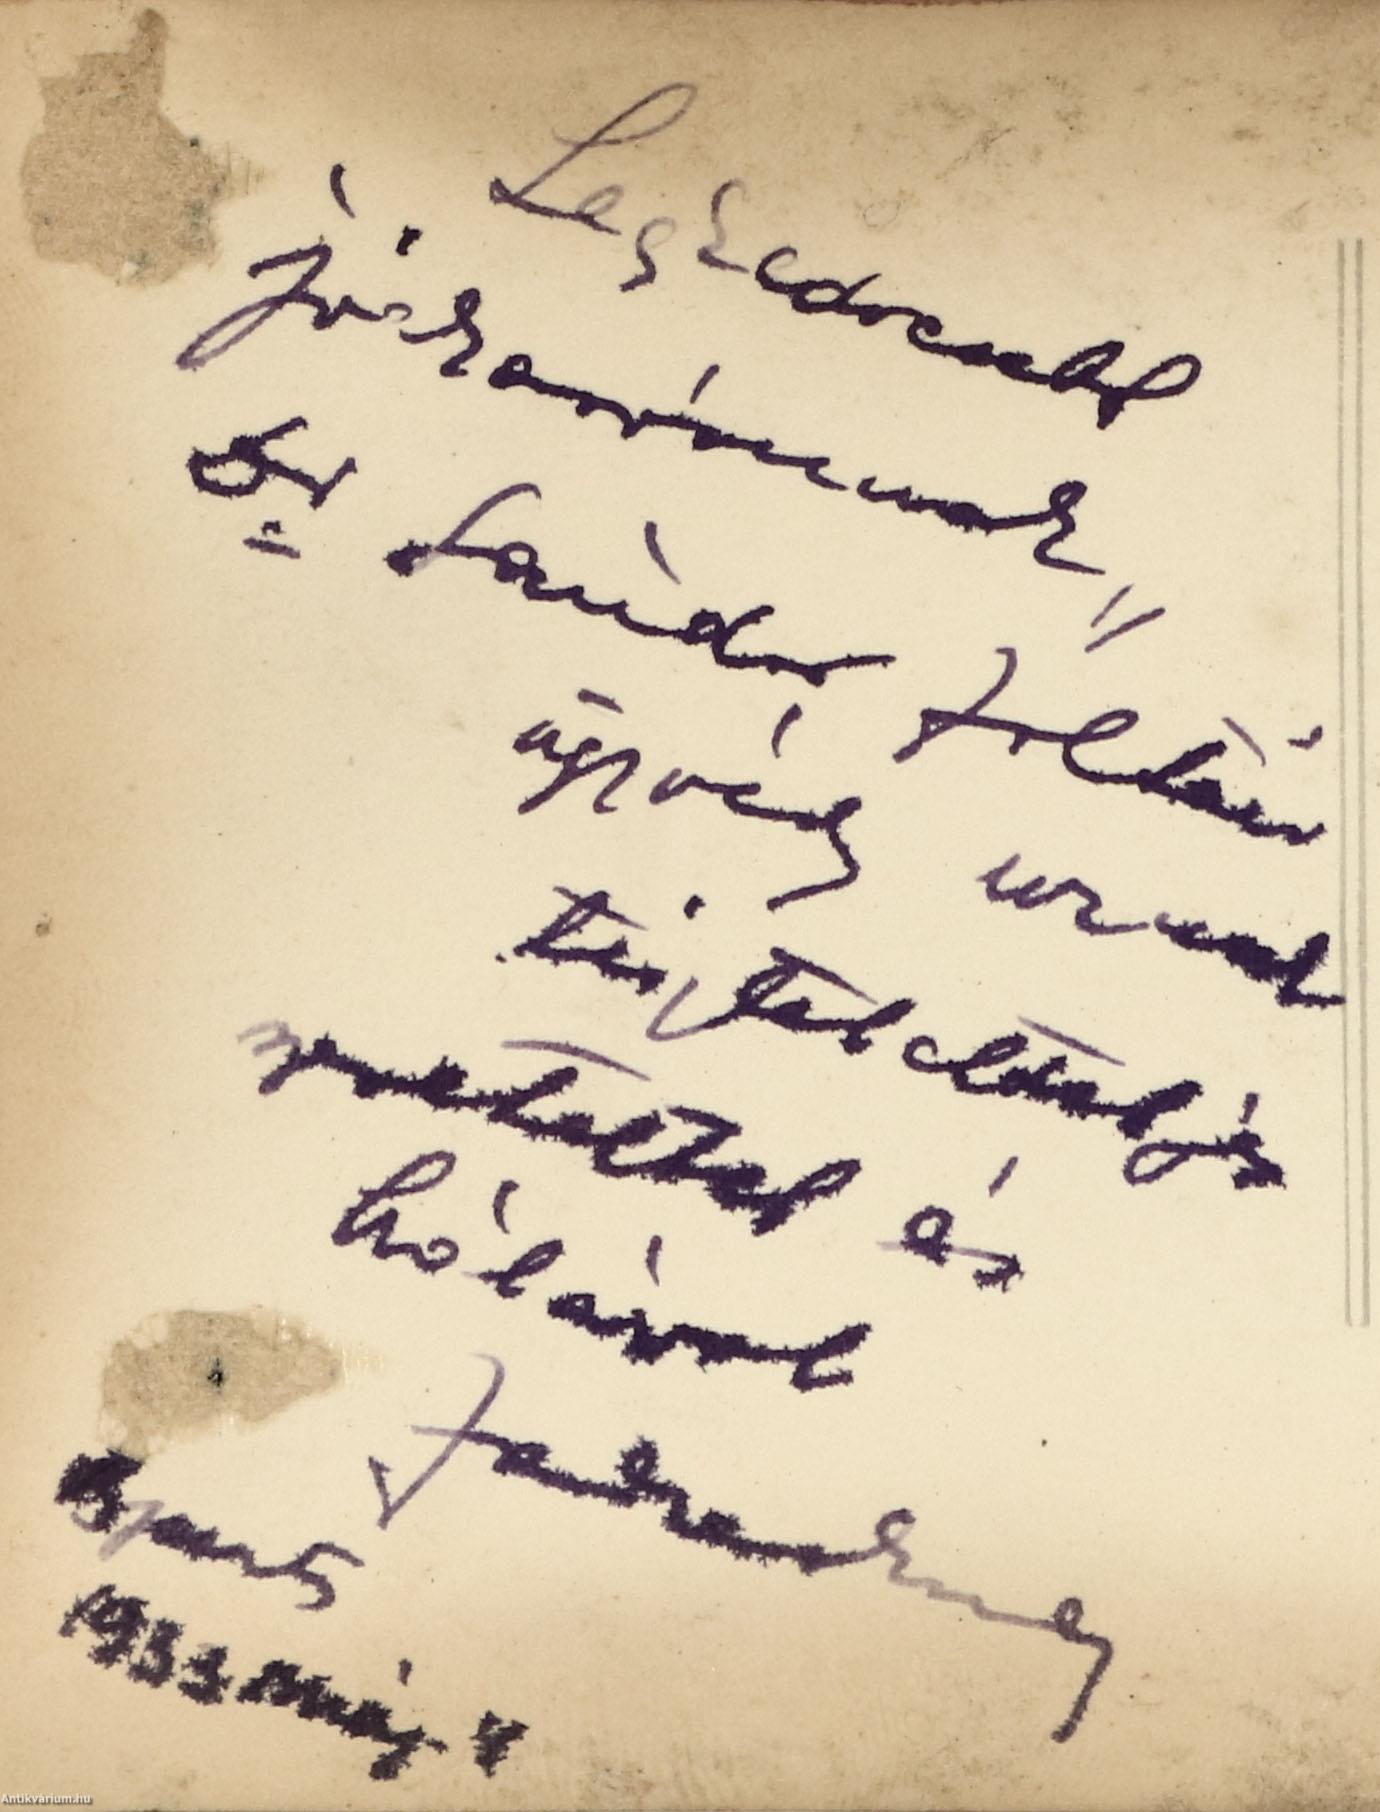 Legkedvesebb
jóakarómnak
Dr Sándor Zoltán
ügyvéd urnak
tisztelettel és
szeretettel és
hálával
1933 máj. 4
Antikvárium.hu